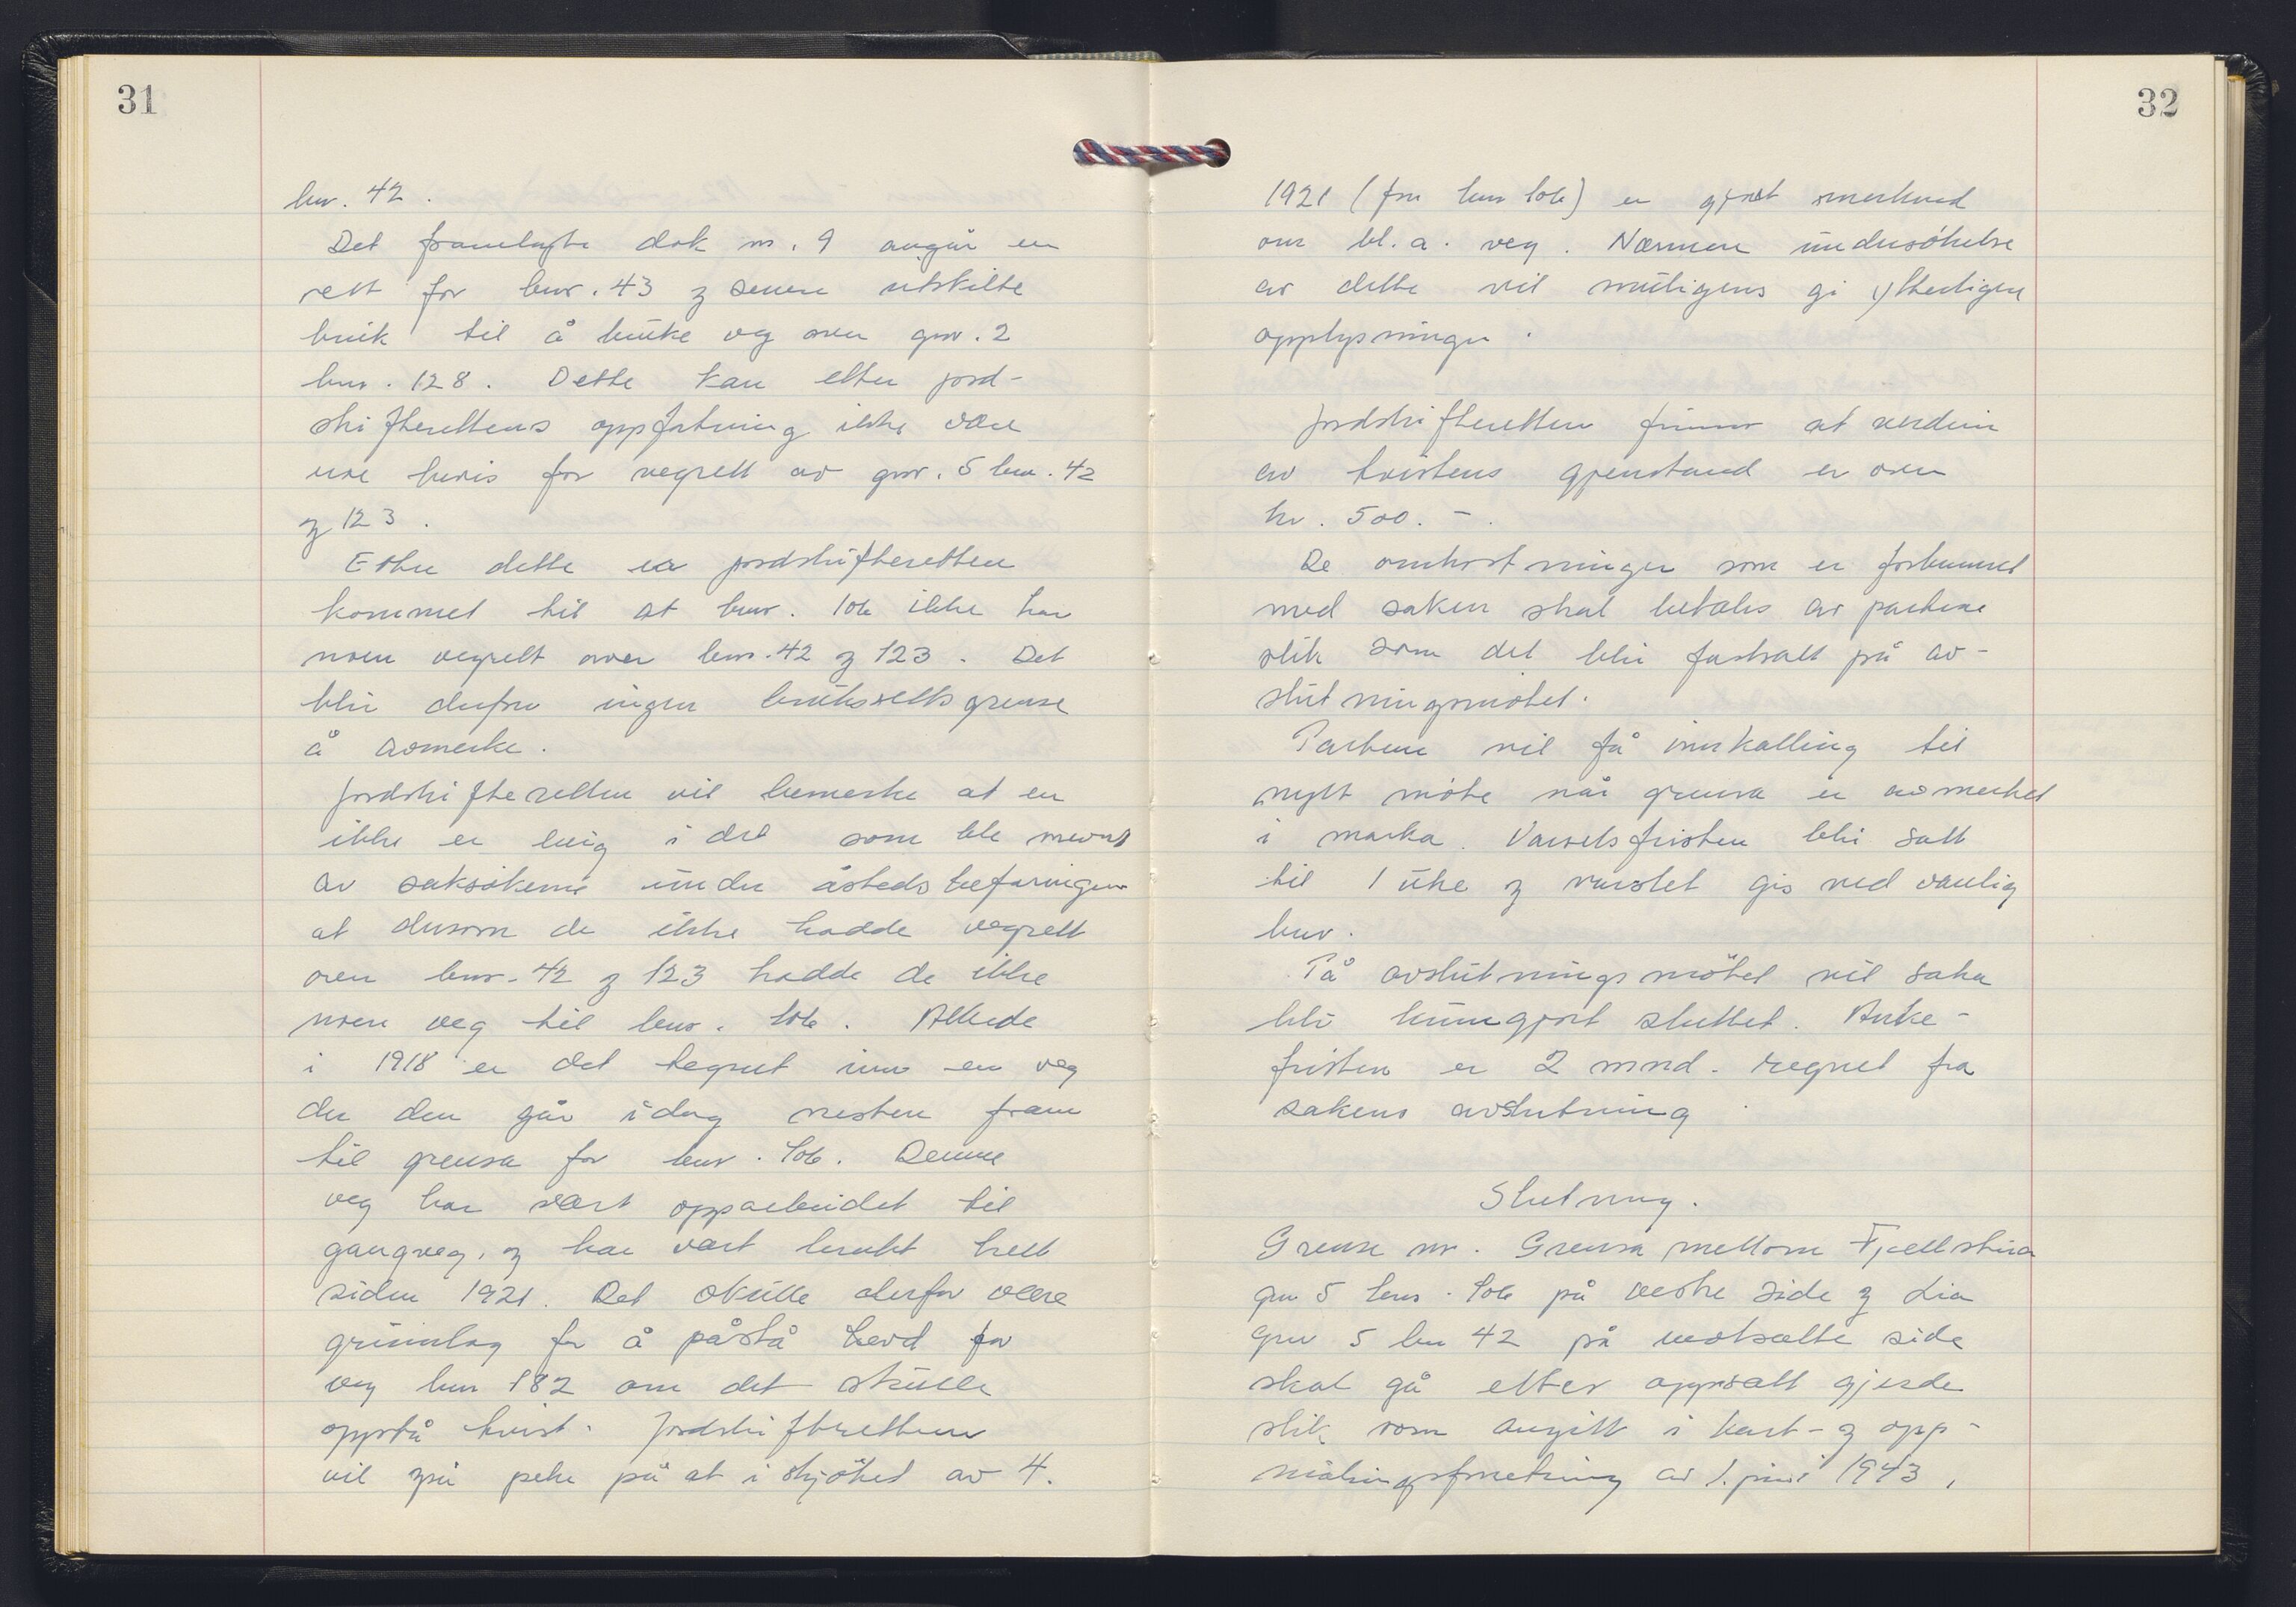 31
bnr. 42.
Det framlagte dok nr. 9 angår en
rett for bnr. 43 og senere utskilte
bruk til å bruke veg over gnr. 2
bnr. 128. Dette kan etter jord-
skifterettens oppfatning ikke være
noe bevis for vegrett av gnr. 5 bnr. 42
og 123.
Etter dette er jordskifteretten
kommet til at bnr. 106 ikke har
noen vegrett over bnr. 42 og 123. Det
blir derfor ingen bruksrettsgrense
å avmerke.
Jordskifteretten vil bemerke at en
ikke er enig i det som ble nevnt
av saksøkerne under åstedsbefaringen
at dersom de ikke hadde vegrett
over bnr. 42 og 123 hadde de ikke
noen veg til bnr. 106. Allerede
i 1918 er det tegnet inn en veg
der den går idag nesten fram
til grensa for bnr. 106. Denne
veg har vært opparbeidet til
gangveg, og har vært brukt helt
siden 1921. Det skulle derfor være
grunnlag for å påstå hevd for
veg bnr 182 om det skulle
oppstå tvist. Jordskifteretten
vil også peke på at i skjøtet av 4.
32
1921 (for bnr 106) er gjort merknad
om bl.a. veg. Nærmere undersøkelse
av dette vil muligens gi ytterligere
opplysninger.
Jordskifteretten finner at verdien
av tvistens gjenstand er over
kr. 500.-.
De omkostninger som er forbunnet
med saken skal betales av partene
slik som det blir fastsatt på av-
slutningsmøtet.
Partene vil få innkalling til
nytt møte når grensa er avmerket
i marka. Varselsfristen blir satt
til 1 uke og varslet gis ved vanlig
brev.
På avslutningsmøtet vil saka
bli kunngjort sluttet. Anke-
fristen er 2 mnd. regnet fra
sakens avslutning.
Slutning.
Grense nr. Grensa mellom Fjellskua
gnr 5 bnr. 106 på vestre side og Lia
gnr 5 bnr 42 på motsatte side
skal gå etter oppsatt gjerde
slik som angitt i kart- og opp-
målingsforretning av 1. juni 1943,